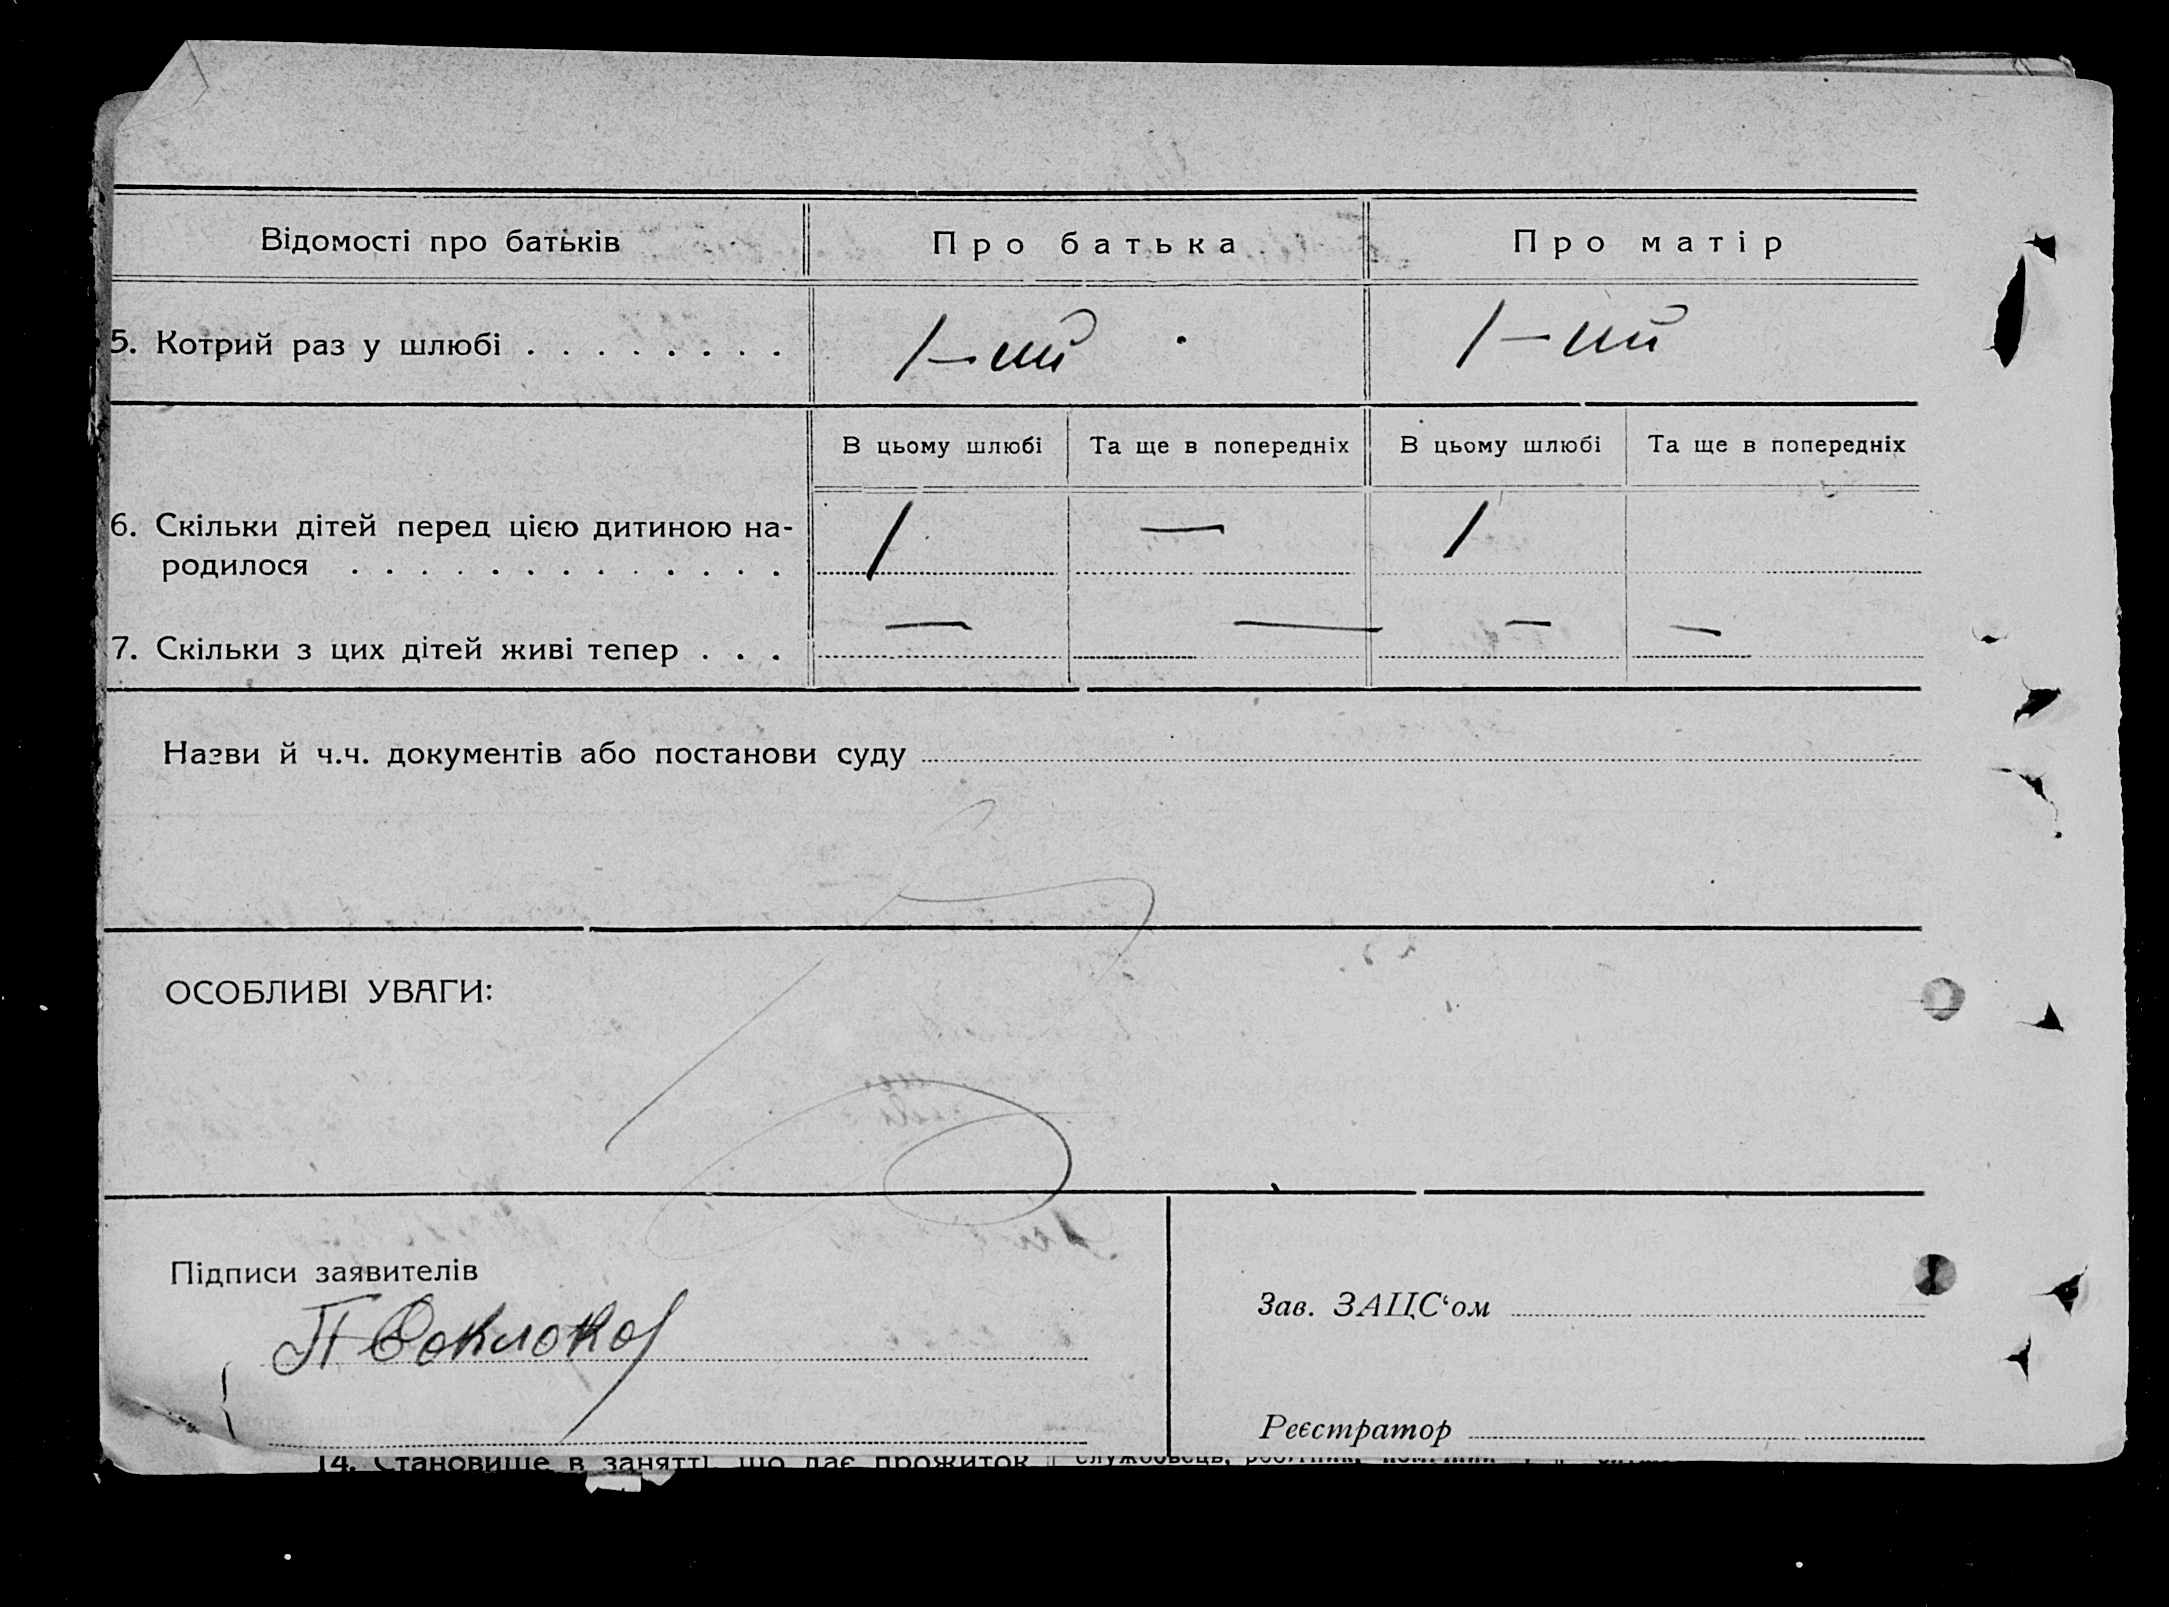 Відомості про батьків Про батька Про матір
5. Котрий раз у шлюбі . . . . . . . . 1-ий 1-ий
В цьому шлюбі Та ще в попередніх В цьому шлюбі Та ще в попередніх
6. Скільки дітей перед цією дитиною на- 1 — 1
родилося . . . . . . . . . . . . .
7. Скільки з цих дітей живі тепер . . . — — — —
Назви й ч.ч. документів або постанови суду
ОСОБЛИВІ УВАГИ:
Підписи заявителів
Зав. ЗАЦС‘ом
П
Реєстратор
14. Становище в занятті, що дає прожиток